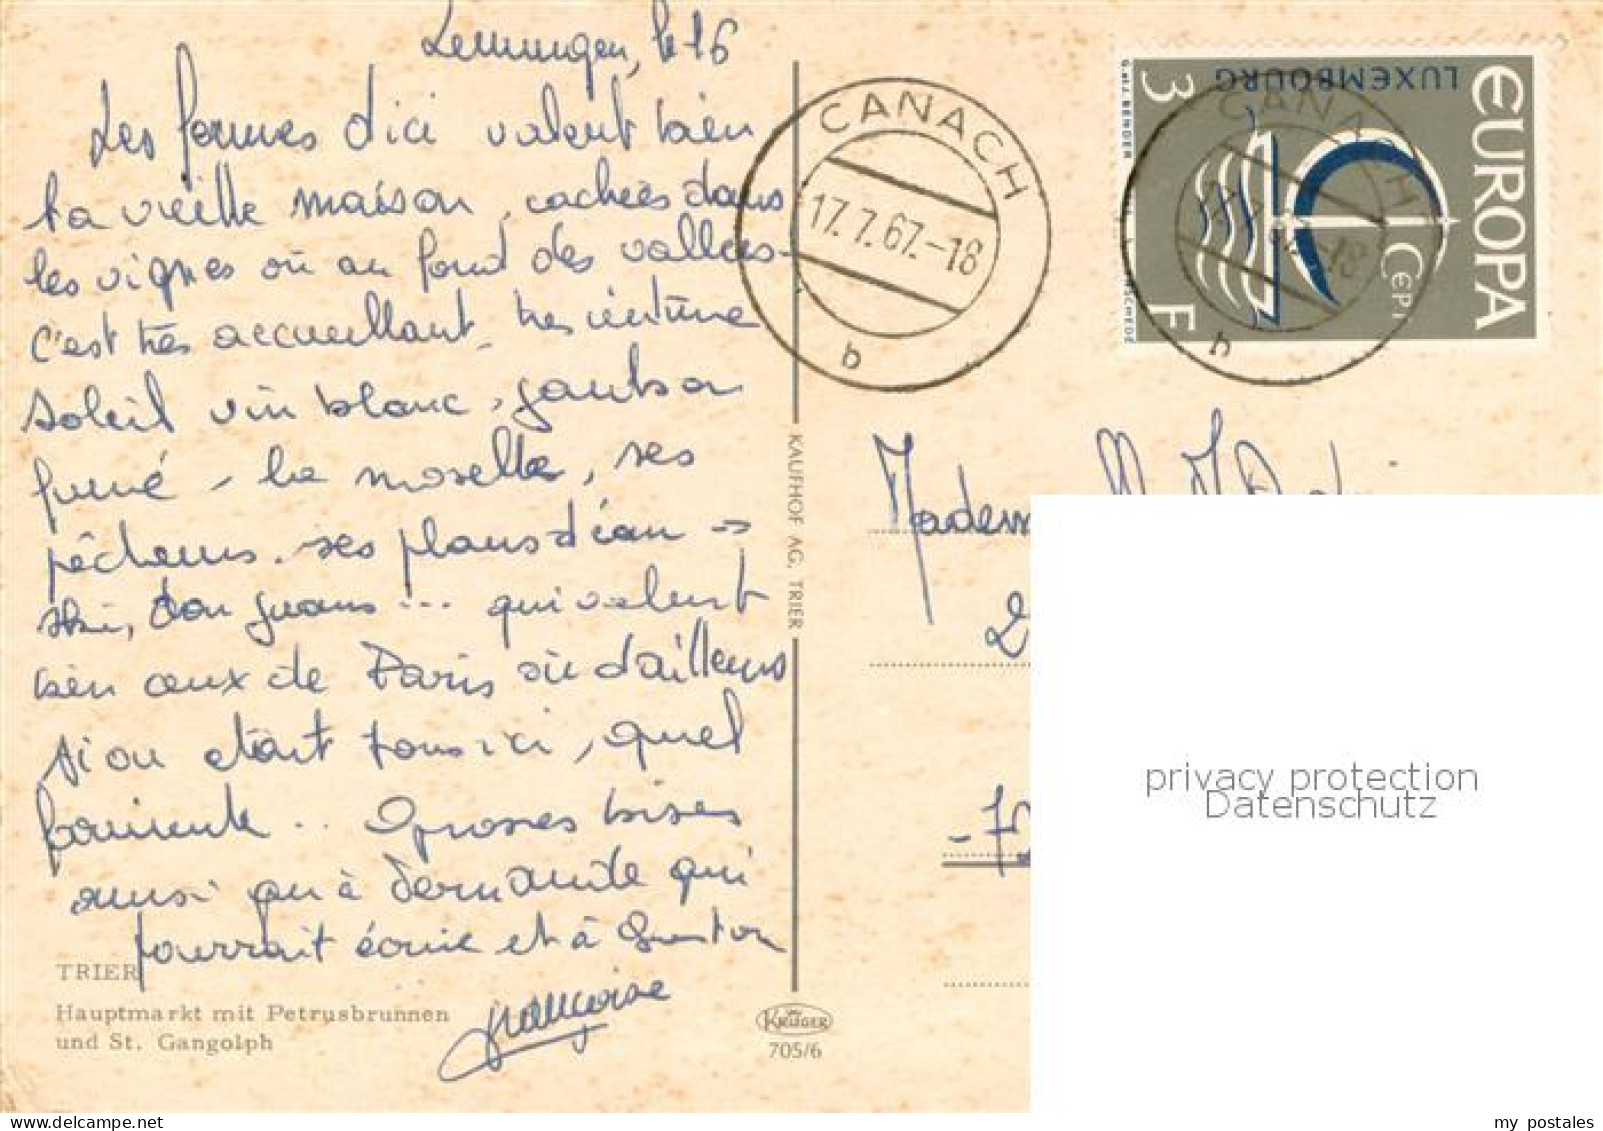 Lenningen, le 16
Les fermes d'ici valent bien
la vieille maison, cachées dans
les vignes ou au fond des vallées -
c'est très accueillant, très intime
soleil vin blanc, jambon
fumé, la moselle, ses
pêcheurs. ses plans d'eau →
ski, don juans... qui valent
bien ceux de Paris où d'ailleurs
si on était tous ici, quel
farniente... Grosses bises
ainsi qu'à qui
pourrait écrire et à
Françoise
TRIER
Hauptmarkt mit Petrusbrunnen
und St. Gangolph
KAUFHOF AG. TRIER
KRÜGER
705/6
CANACH
17.7.67.-18
b
EUROPA
CEPT
LUXEMBOURG
3 F
CANACH
18
b
G. et J. BENDER
2
- 75
privacy protection
Datenschutz
my postales